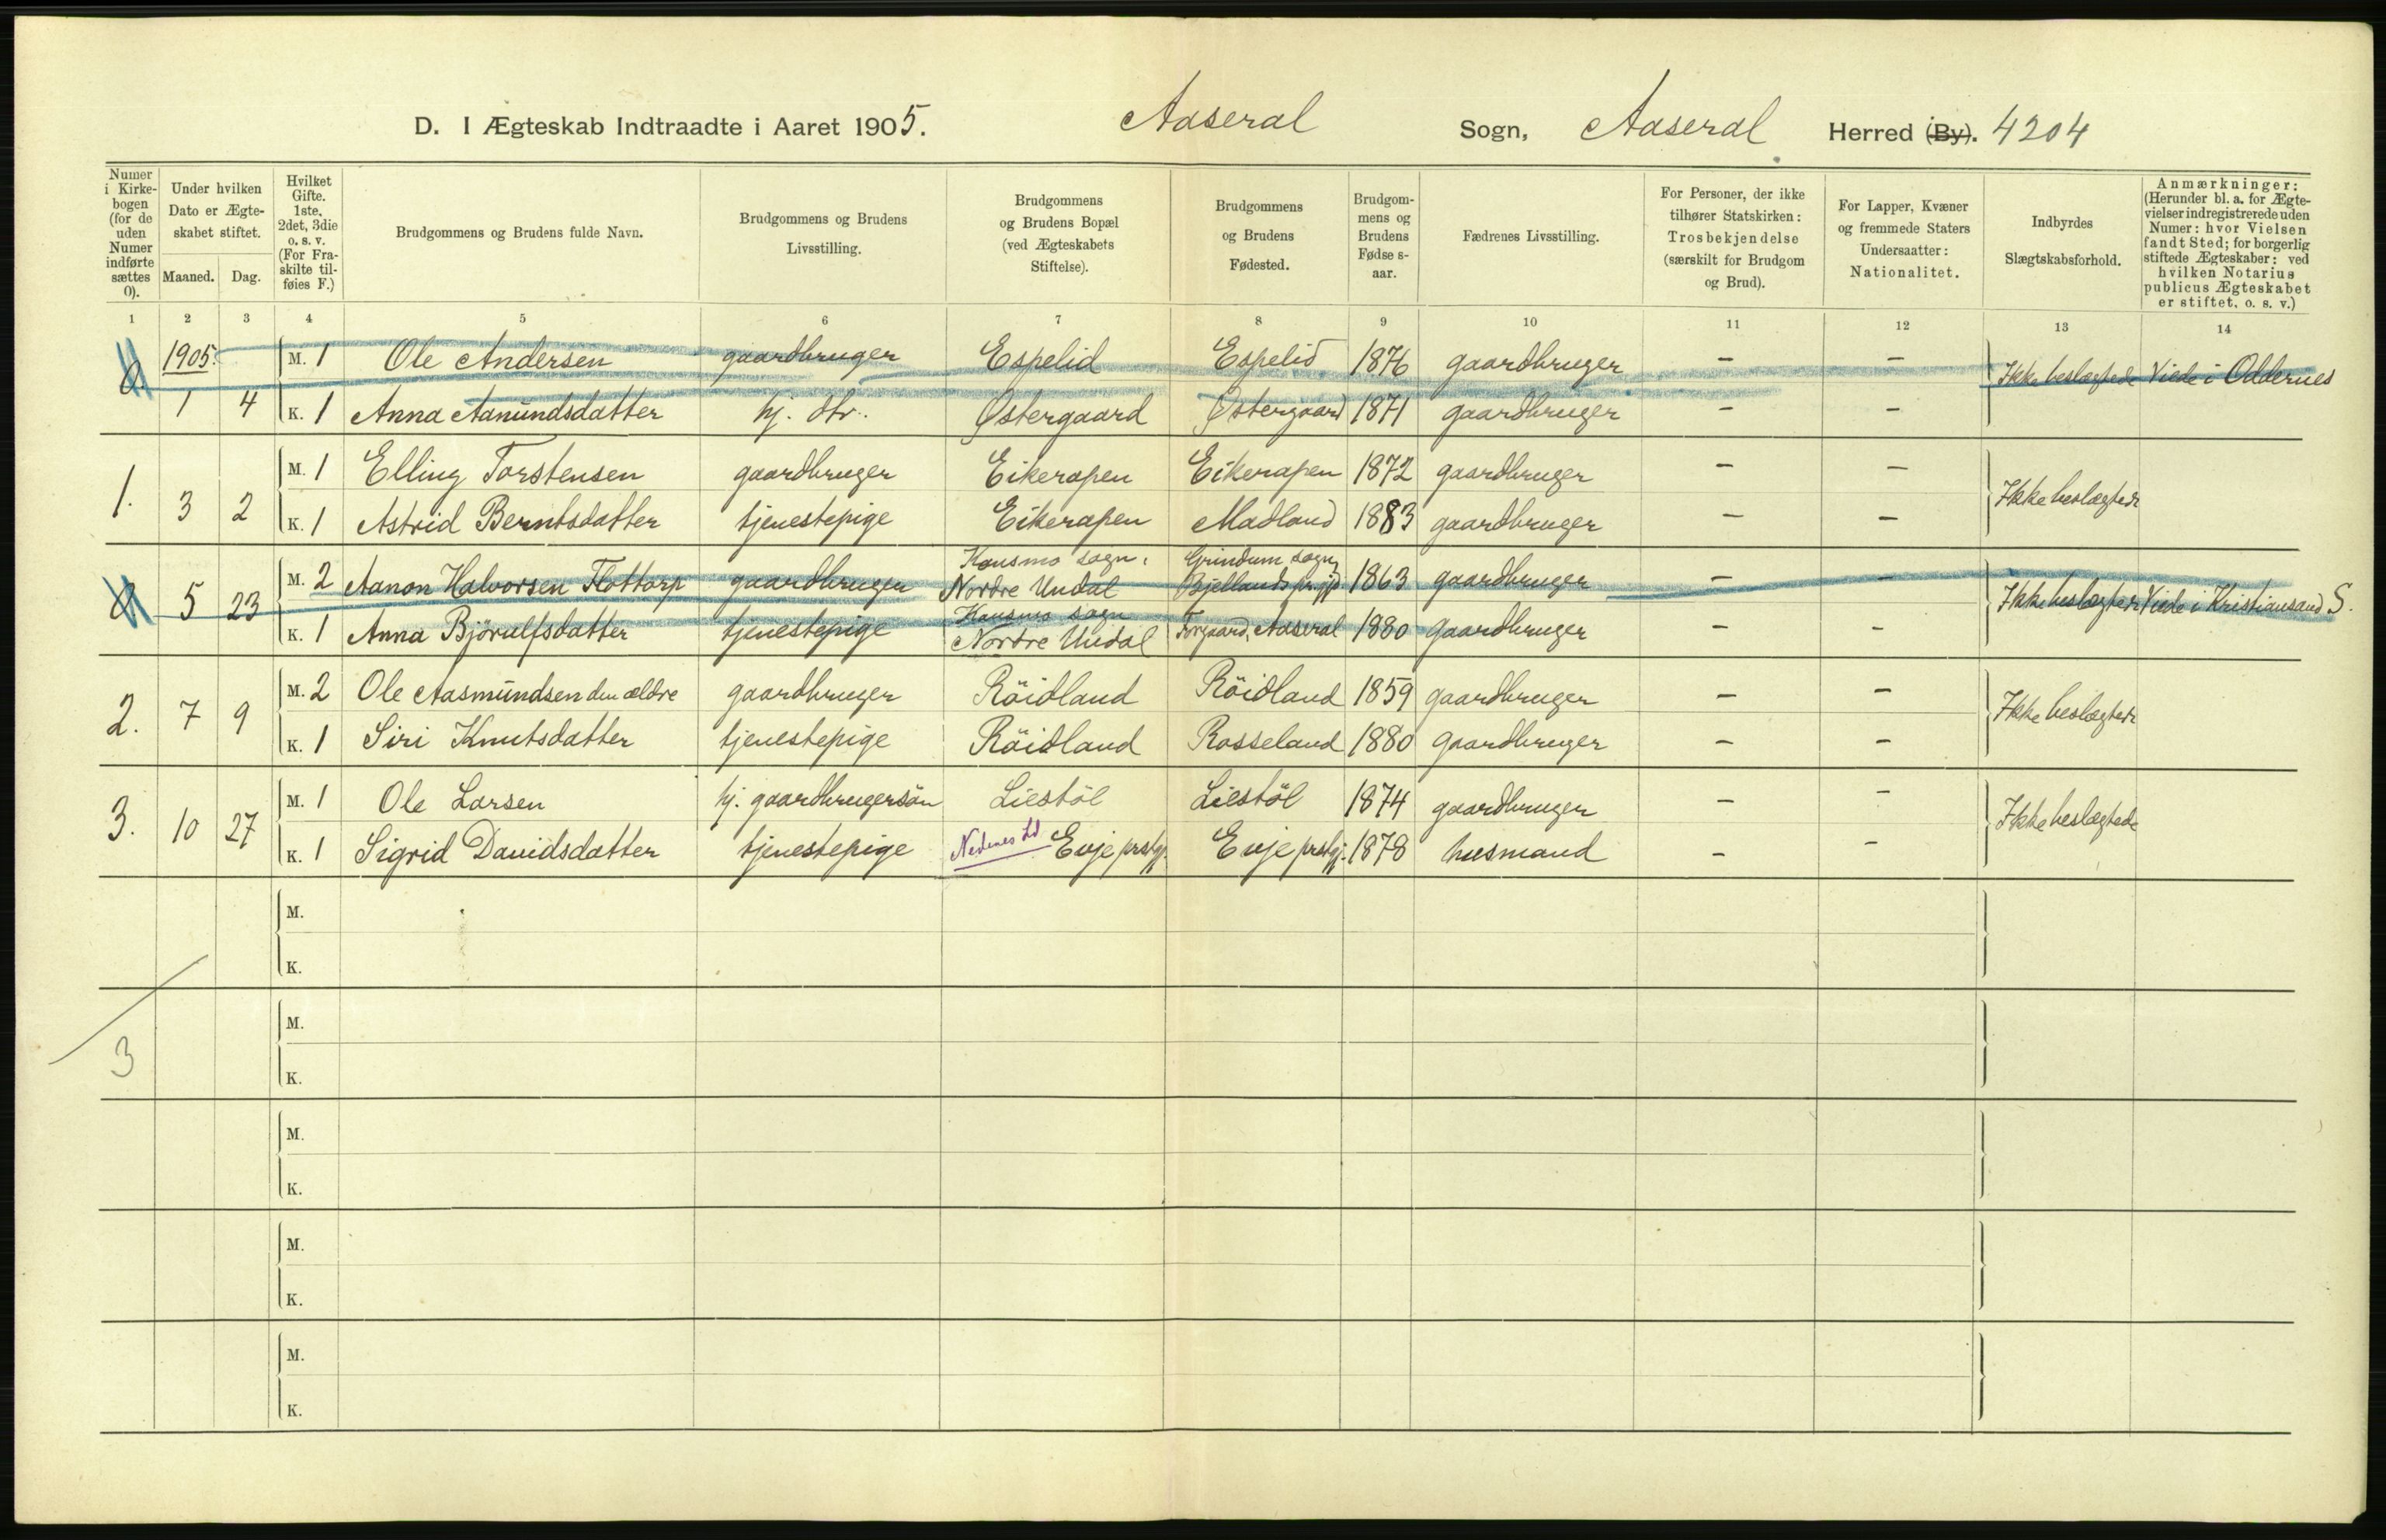 D. I Ægteskab Indtraadte i Aaret 1905. Aaseral Sogn, Aaseral Herred (By). 4204
Numer i Kirkebogen (for de uden Numer indførte sættes 0).
Under hvilken Dato er Ægteskabet stiftet.
Maaned. Dag.
Hvilket Gifte. 1ste, 2det, 3die o. s. v. (For Fraskilte tilføies F.)
Brudgommens og Brudens fulde Navn.
Brudgommens og Brudens Livsstilling.
Brudgommens og Brudens Bopæl (ved Ægteskabets Stiftelse).
Brudgommens og Brudens Fødested.
Brudgommens og Brudens Fødselsaar.
Fædrenes Livsstilling.
For Personer, der ikke tilhører Statskirken: Trosbekjendelse (særskilt for Brudgom og Brud).
For Lapper, Kvæner og fremmede Staters Undersaatter: Nationalitet.
Indbyrdes Slægtskabsforhold.
Anmærkninger: (Herunder bl. a. for Ægtevielser indregistrerede uden Numer: hvor Vielsen fandt Sted; for borgerlig stiftede Ægteskaber: ved hvilken Notarius publicus Ægteskabet er stiftet, o. s. v.)
1 2 3 4 5 6 7 8 9 10 11 12 13 14
0. 1905. M. 1 Ole Andersen gaardbruger Espelid Espelid 1876 gaardbruger — — Ikke beslægtede Viede i Oddernes
1 4 K. 1 Anna Aanundsdatter hj. dtr. Østergaard Østergaard 1871 gaardbruger — —
M. 1 Elling Torstensen gaardbruger Eikerapen Eikerapen 1872 gaardbruger — —
1. 3 2 K. 1 Astrid Berntsdatter tjenestepige Eikerapen Madland 1883 gaardbruger — — Ikke beslægtede
Konsmo sogn, Grindum sogn,
0. 5 23 M. 2 Aanon Halvorsen Flottorp gaardbruger Nordre Undal Bjellands prgjr. 1863 gaardbruger — — Ikke beslægtede Viede i Kristiansand S.
Konsmo sogn
K. 1 Anna Bjørulfsdatter tjenestepige Nordre Undal Torgaard, Aaseral 1880 gaardbruger — —
M. 2 Ole Aasmundsen den ældre gaardbruger Röidland Röidland 1859 gaardbruger — —
2. 7 9 K. 1 Siri Knutsdatter tjenestepige Röidland Rosseland 1880 gaardbruger — — Ikke beslægtede
M. 1 Ole Larsen hj. gaardbrugersön Liestöl Liestöl 1874 gaardbruger — —
3. 10 27 K. 1 Sigrid Davidsdatter tjenestepige Nedenes Ld Evje prstgj. Evje prstgj. 1878 husmand — — Ikke beslægtede
M.
K.
M.
3
K.
M.
K.
M.
K.
M.
K.